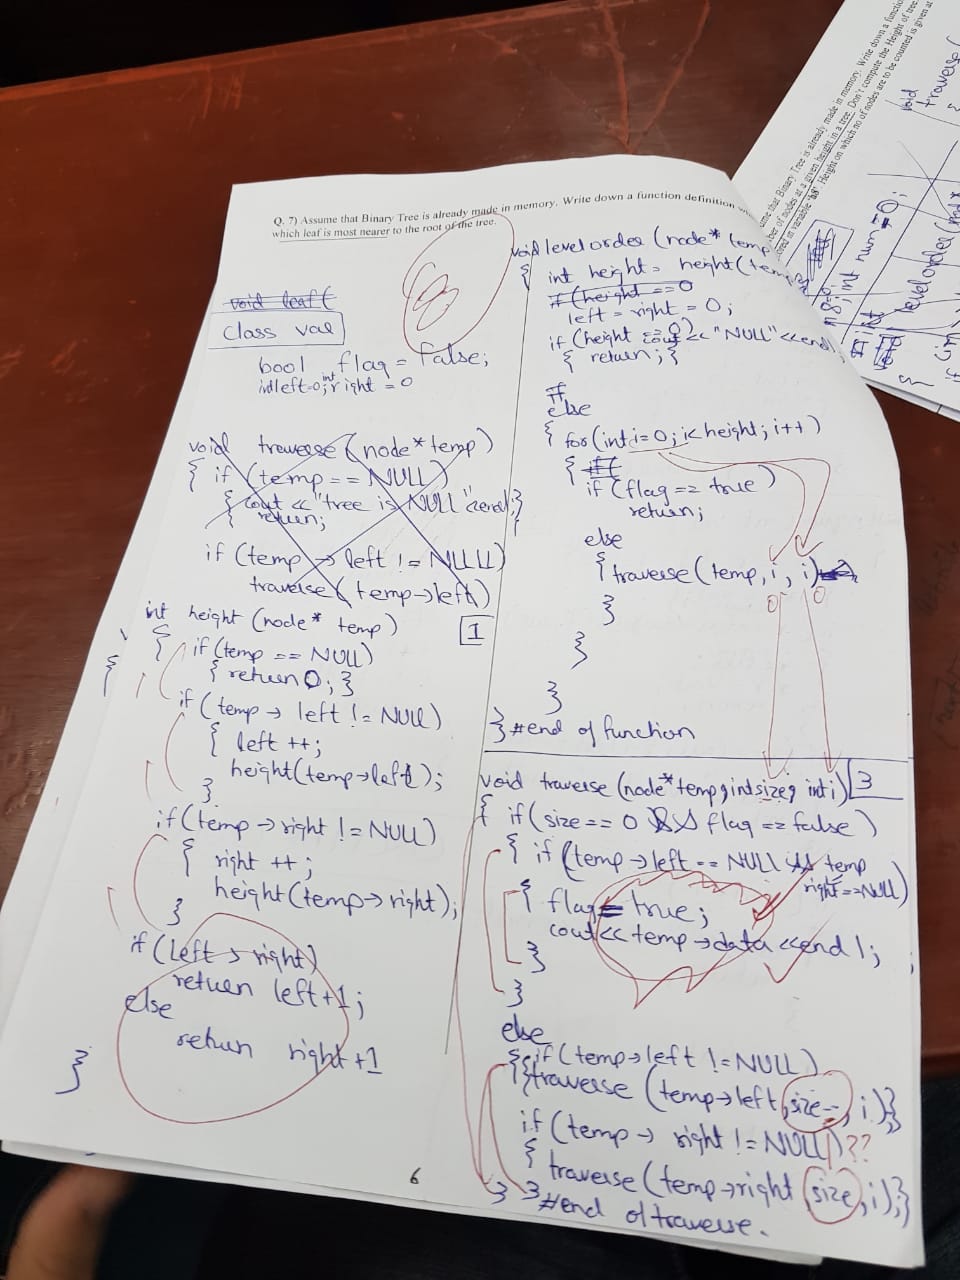 Q. 7) Assume that Binary Tree is already made in memory. Write down a function definition
which leaf is most nearer to the root of the tree.
void leaf(
Class val
bool flag = False;
int left=0; int right = 0
void traverse (node* temp)
{ if (temp == NULL)
{ cout << "tree is NULL" <<endl;}
return;
if (temp → left != NULL)
traverse (temp→left)
int height (node* temp)
1
{ if (temp == NULL)
{ return 0; }
if (temp → left != NULL)
{ left ++;
height(temp→left);
}
if(temp → right != NULL)
{ right ++;
height(temp→right);
}
if (left > right)
return left+1;
else
return right +1
}
6
void levelorder (node* temp
{ int height = height(temp
if (height == 0
left = right = 0;
if (height == 0) cout << "NULL" <<endl
{ return; }
else
{ for(int i=0; i< height; i++)
{ if(
if (flag == true)
return;
else
{ traverse (temp, i, i)
0 0
}
}
}
} #end of function
void traverse (node* temp, int size, int i) 3
{ if (size == 0 && flag == false)
{ if (temp → left == NULL && temp
right == NULL)
{ flag = true;
cout << temp → data <<endl;
}
}
else
{ if (temp→left != NULL)
{ traverse (temp→left, size--, i);}
if (temp → right != NULL) ??
{ traverse (temp→right, size, i);}
} } #end of traverse.
ume that Binary Tree is already made in memory. Write down a function
ber of nodes at a given height in a tree. Don't compute the Height of tree
Height on which no of nodes are to be counted is given at
void
traverse (
int num = 0;
levelorder (